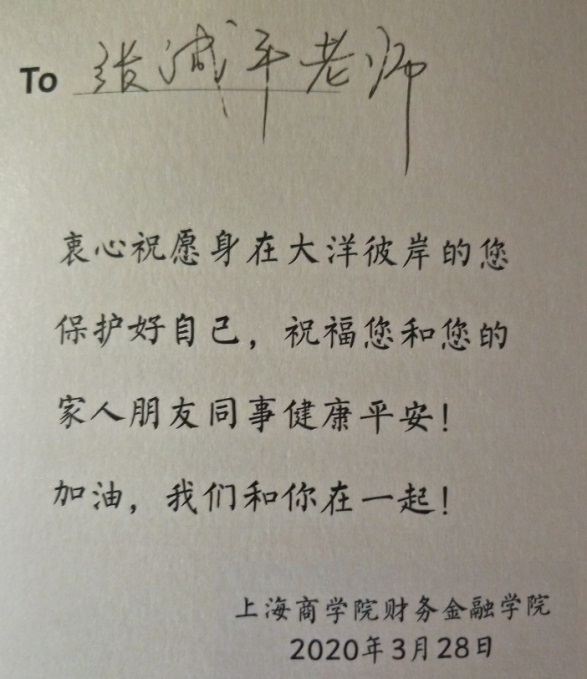 To 张减平老师
衷心祝愿身在大洋彼岸的您
保护好自己，祝福您和您的
家人朋友同事健康平安！
加油，我们和你在一起！
上海商学院财务金融学院
2020年3月28日